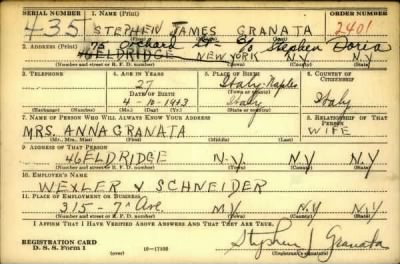 SERIAL NUMBER 1. NAME (Print) ORDER NUMBER
435 STEPHEN JAMES GRANATA 2401
(First) (Middle) (Last)
75 Orchard St- C/o Stephen Doria
2. ADDRESS (Print)
46 ELDRIDGE NEW YORK N.Y
(Number and street or R. F. D. number) (Town) (County) (State)
3. TELEPHONE 4. AGE IN YEARS 5. PLACE OF BIRTH 6. COUNTRY OF CITIZENSHIP
27 Italy-Naples
DATE OF BIRTH (Town or county)
4-10-1913 Italy Italy
(Exchange) (Number) (Mo.) (Day) (Yr.) (State or country)
7. NAME OF PERSON WHO WILL ALWAYS KNOW YOUR ADDRESS 8. RELATIONSHIP OF THAT PERSON
MRS. ANNA GRANATA WIFE
(Mr., Mrs., Miss) (First) (Middle) (Last)
9. ADDRESS OF THAT PERSON
46 ELDRIDGE N.Y. N.Y N.Y
(Number and street or R. F. D. number) (Town) (County) (State)
10. EMPLOYER'S NAME
WEXLER & SCHNEIDER
11. PLACE OF EMPLOYMENT OR BUSINESS
315-7th Ave. N.Y N.Y N.Y
(Number and street or R. F. D. number) (Town) (County) (State)
I AFFIRM THAT I HAVE VERIFIED ABOVE ANSWERS AND THAT THEY ARE TRUE.
REGISTRATION CARD
D. S. S. Form 1 (over) 16-17105 Stephen J Granata